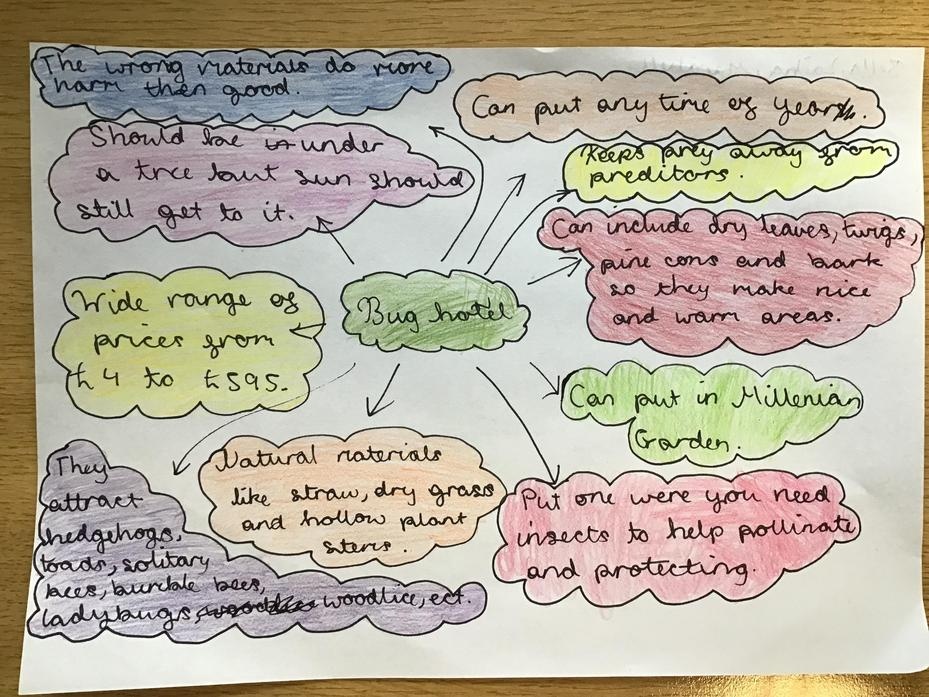 The wrong materials do more
harm then good.
Can put any time of year.
Should be under
a tree but sun should
still get to it.
Keeps prey away from
preditors.
Can include dry leaves, twigs,
pine cons and bark
so they make nice
and warm areas.
Bug hotel
Wide range of
prices from
£4 to £595.
Can put in Millenian
Garden.
They
attract
hedgehogs,
toads, solitary
bees, bumble bees,
ladybugs, woodlice, ect.
Natural materials
like straw, dry grass
and hollow plant
stems.
Put one were you need
insects to help pollinate
and protecting.